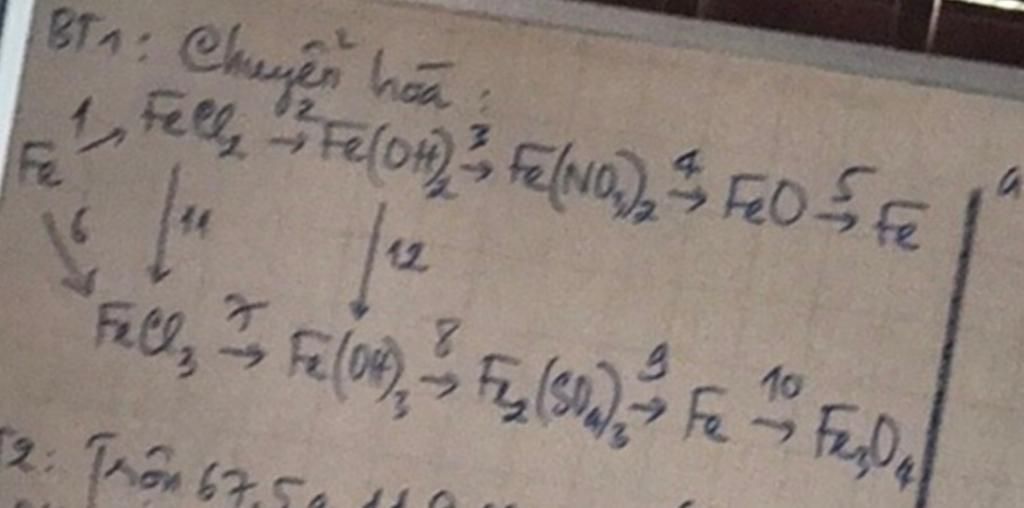 BT1: Chuyển hoá:
Fe 1→ FeCl2 2→ Fe(OH)2 3→ Fe(NO3)2 4→ FeO 5→ Fe
6 11 12
FeCl3 7→ Fe(OH)3 8→ Fe2(SO4)3 9→ Fe 10→ Fe3O4
2: Trộn 67,5g